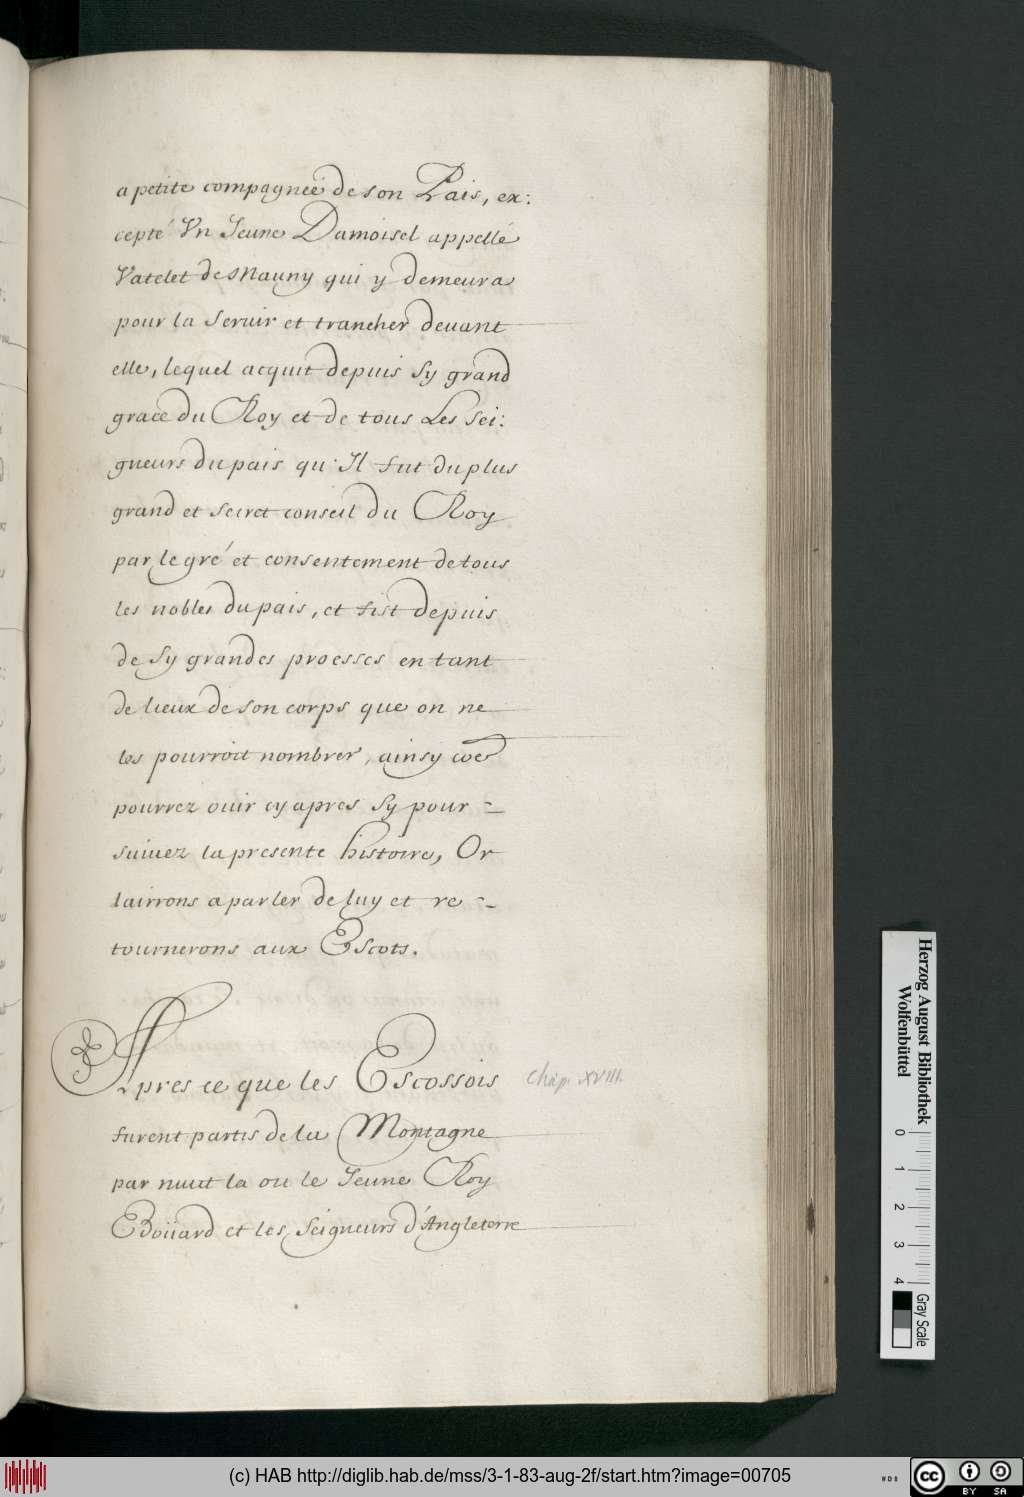 a petite compagneé de son Pais, ex:
cepté Vn Jeune Damoisel appellé
Vatelet de Mauny qui y demeura
pour la Seruir et trancher deuant
elle, lequel acquit depuis Sy grand
grace du Roy et de tous Les Sei:
gneurs du pais qu'Il fut du plus
grand et secret conseil du Roy
par le gré et consentement de tous
les nobles du pais, et fist depuis
de Sy grandes proesses en tant
de lieux de son corps que on ne
les pourroit nombrer, ainsy coe
pourrez ouir cy apres Sy pour=
suiuez la presente histoire, Or
lairrons a parler de luy et re=
tournerons aux Escots.
Apres ce que les Escossois
Chap. XVIII.
furent partis de la Montagne
par nuit la ou le Jeune Roy
Edoüard et les Seigneurs d'Angleterre
Herzog August Bibliothek
Wolfenbüttel
0 1 2 3 4
Gray Scale
(c) HAB http://diglib.hab.de/mss/3-1-83-aug-2f/start.htm?image=00705
WDB
cc BY SA